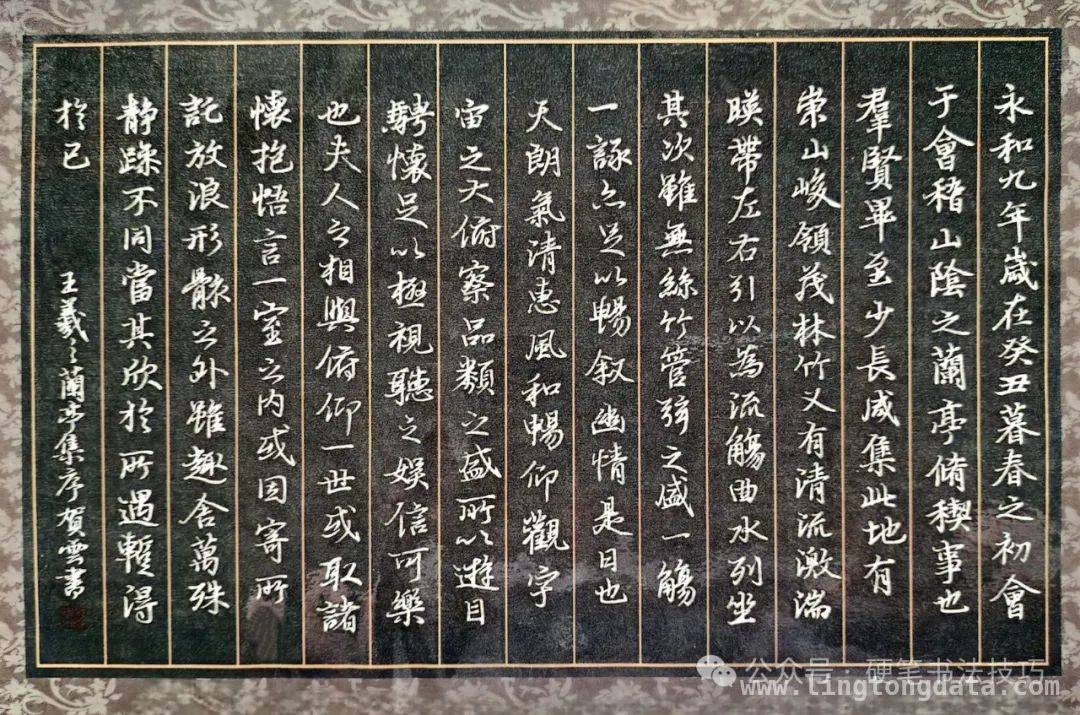 永和九年歲在癸丑暮春之初會
于會稽山陰之蘭亭脩稧事也
羣賢畢至少長咸集此地有
崇山峻領茂林竹又有清流激湍
暎帶左右引以為流觴曲水列坐
其次雖無絲竹管弦之盛一觴
一詠亦足以暢叙幽情是日也
天朗氣清惠風和暢仰觀宇
宙之大俯察品類之盛所以遊目
騁懷足以極視聽之娛信可樂
也夫人之相與俯仰一世或取諸
懷抱悟言一室之内或因寄所
託放浪形骸之外雖趣舍萬殊
静躁不同當其欣於所遇暫得
於己
王羲之蘭亭集序賀雲書
公众号：硬笔书法技巧
www.tingtongdata.com